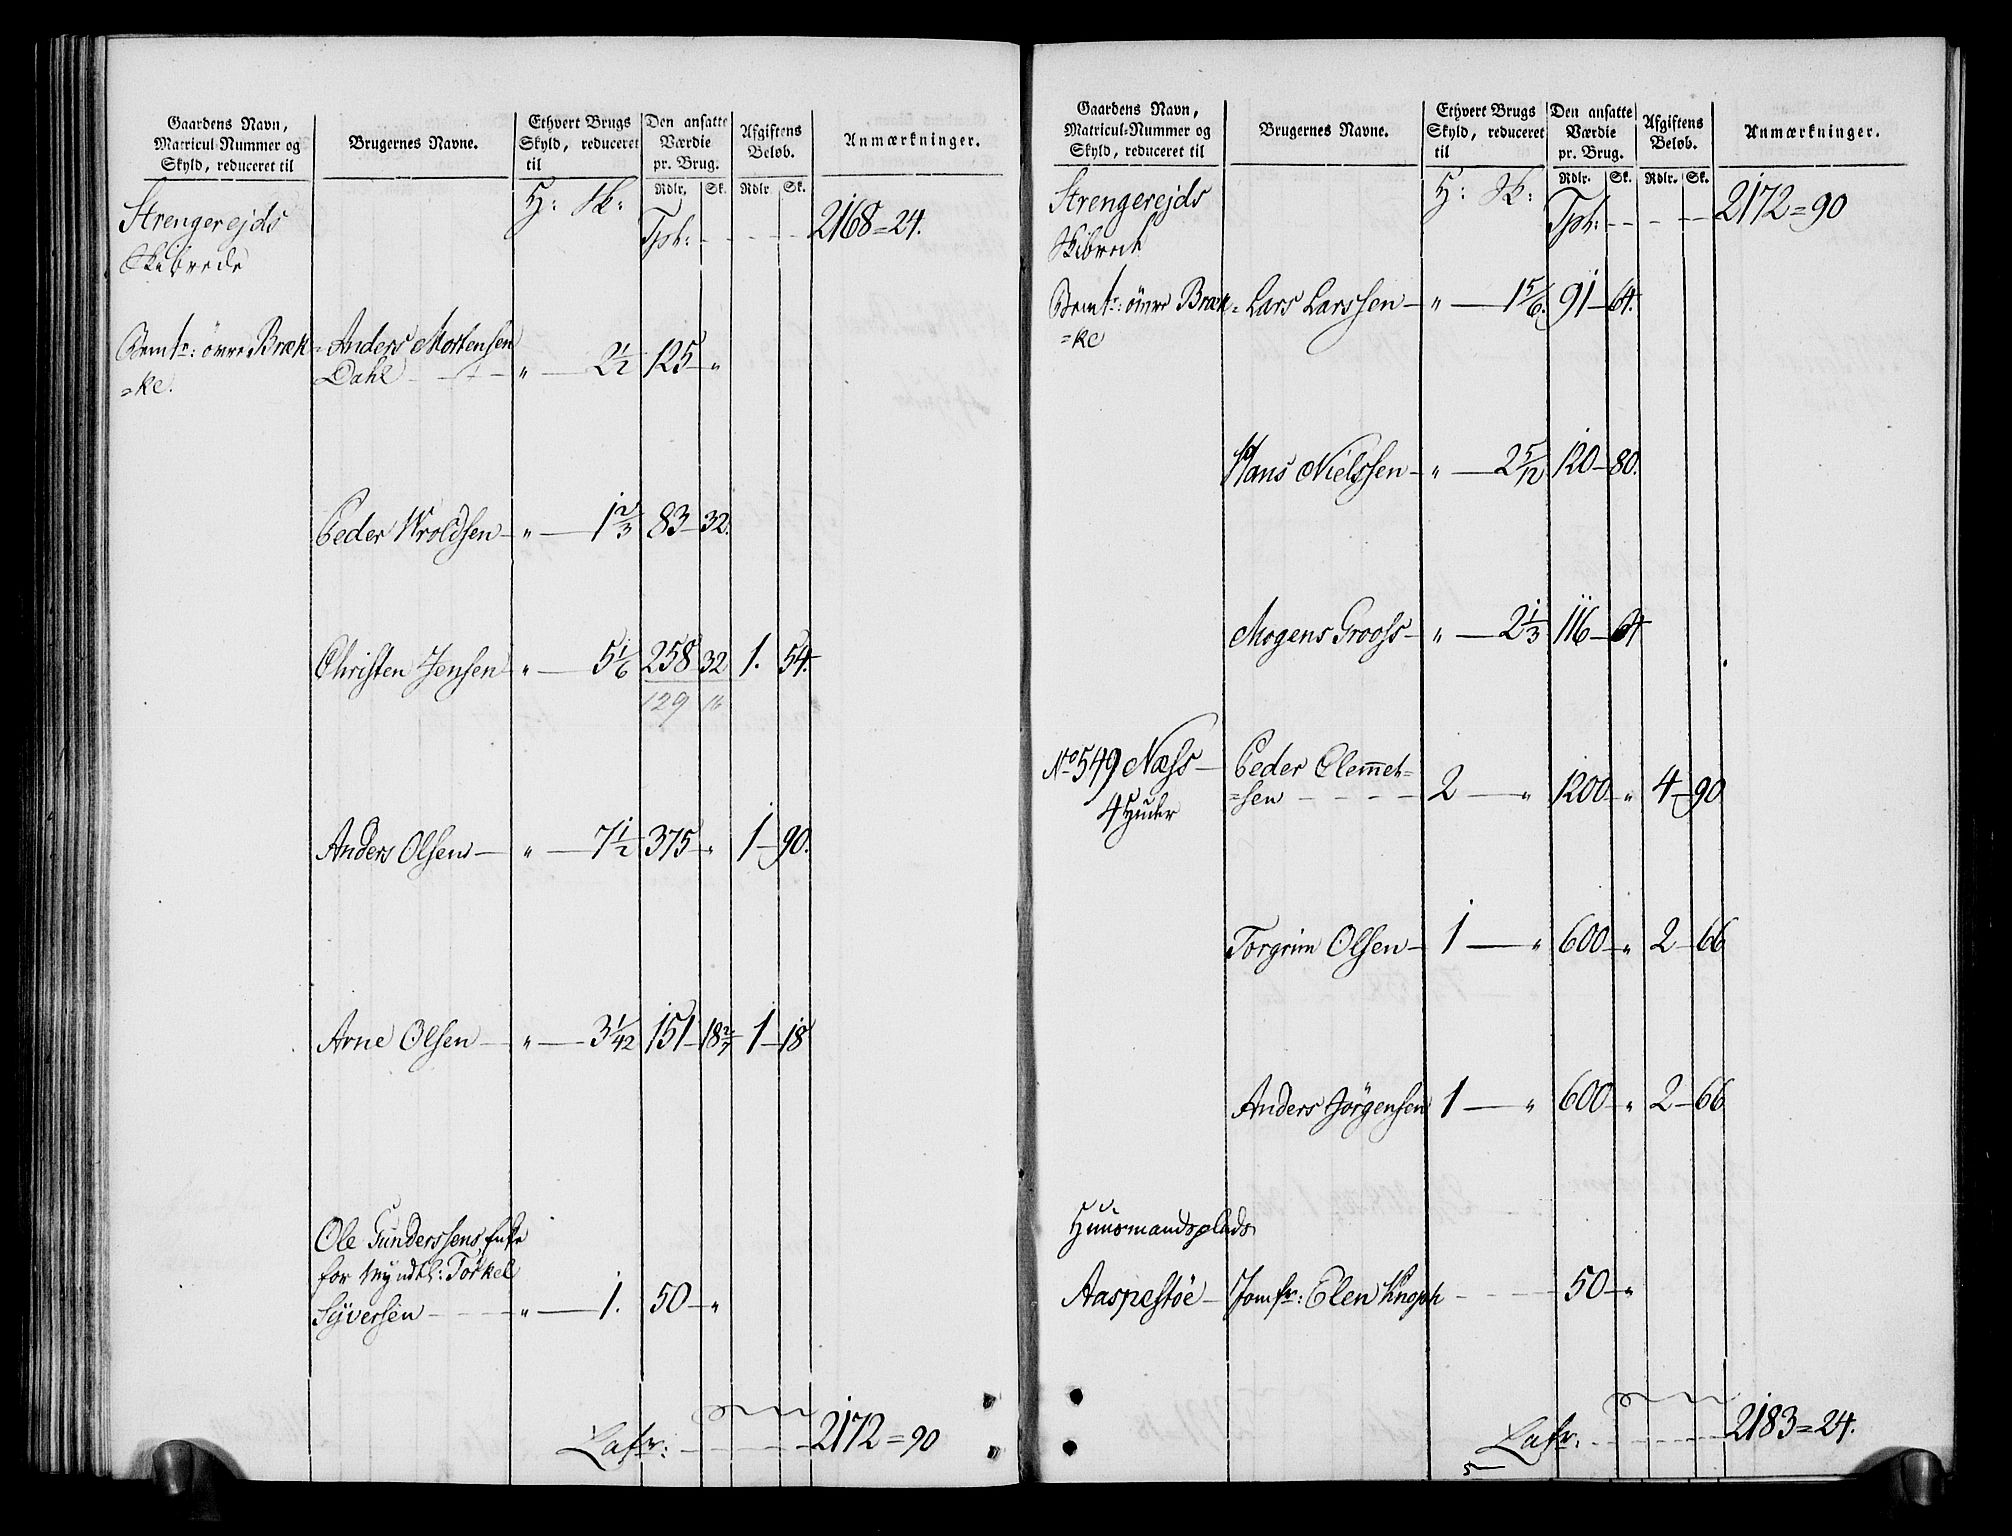 Gaardens Navn, Matricul-Nummer og Skyld, reduceret til | Brugernes Navne. | Ethvert Brugs Skyld, reduceret til | Den ansatte Værdie pr. Brug. | Afgiftens Beløb. | Anmærkninger.
Rdlr. Sk. Rdlr. Sk.
Strengerejds H: Sk: Tpt: 2168=24.
Skibrede
Bemte: öwre Bræk= Anders Mortensen
=ke. Dahl " 2½ 125 "
Peder Wroldsen " 1⅔ 83 32.
Christen Jensen " 5⅙ 258 32 1. 54.
129 "
Anders Olsen " 7½ 375 " 1 90.
Arne Olsen " 3 1/42 151 18 2/7 1 18
Ole Gunderssens Enke
for Myndtl: Torkel
Syversen " 1. 50 "
Lafr: 2172=90
Gaardens Navn, Matricul-Nummer og Skyld, reduceret til | Brugernes Navne. | Ethvert Brugs Skyld, reduceret til | Den ansatte Værdie pr. Brug. | Afgiftens Beløb. | Anmærkninger.
Rdlr. Sk. Rdlr. Sk.
Strengerejds H: Sk: Tpt: 2172=90
Skibrede
Bemte: öwre Bræk= Lars Larssen " 1⅚. 91 64.
=ke
Hans Nielssen " 2 5/12 120 80.
Mogens Grooss " 2⅓ 116 64
No 549 Næss Peder Clemet=
4 Huder =sen 2 " 1200 " 4 90
Torgrim Olsen 1 " 600 " 2 66
Anders Jörgensen 1 " 600 " 2 66
Huusmandsplads
Aaspestöe Jomfr: Elen Knoph 50 "
Lafr: 2183=24.
5